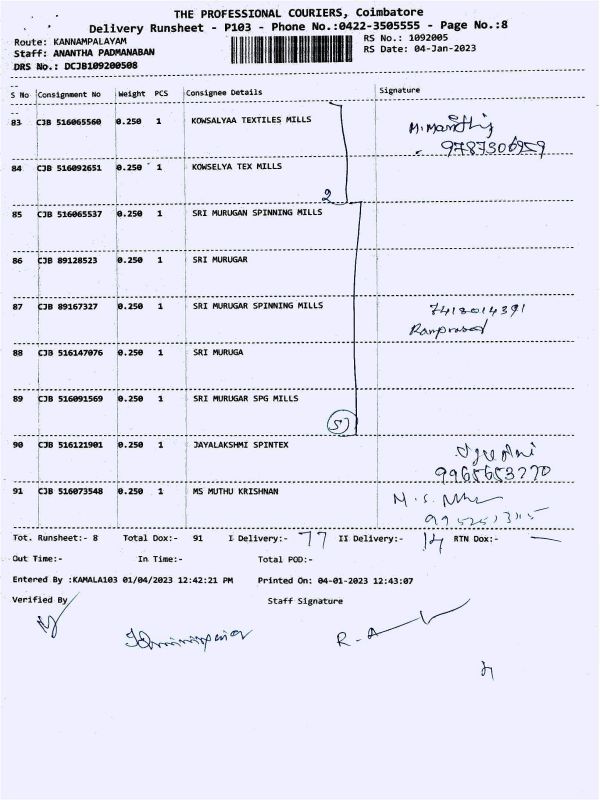 THE PROFESSIONAL COURIERS, Coimbatore
Delivery Runsheet - P103 - Phone No.:0422-3505555 - Page No.:8
Route: KANNAMPALAYAM RS No.: 1092005
Staff: ANANTHA PADMANABAN RS Date: 04-Jan-2023
DRS No.: DCJB109200508
S No Consignment No Weight PCS Consignee Details Signature
83 CJB 516065560 0.250 1 KOWSALYAA TEXTILES MILLS
9787306959
84 CJB 516092651 0.250 1 KOWSELYA TEX MILLS
2
85 CJB 516065537 0.250 1 SRI MURUGAN SPINNING MILLS
86 CJB 89128523 0.250 1 SRI MURUGAR
87 CJB 89167327 0.250 1 SRI MURUGAR SPINNING MILLS 7418014391
Ramprasad
88 CJB 516147076 0.250 1 SRI MURUGA
89 CJB 516091569 0.250 1 SRI MURUGAR SPG MILLS
5
90 CJB 516121901 0.250 1 JAYALAKSHMI SPINTEX
9965653770
91 CJB 516073548 0.250 1 MS MUTHU KRISHNAN M.S.
Tot. Runsheet:- 8 Total Dox:- 91 I Delivery:- 77 II Delivery:- 14 RTN Dox:- —
Out Time:- In Time:- Total POD:-
Entered By :KAMALA103 01/04/2023 12:42:21 PM Printed On: 04-01-2023 12:43:07
Verified By Staff Signature